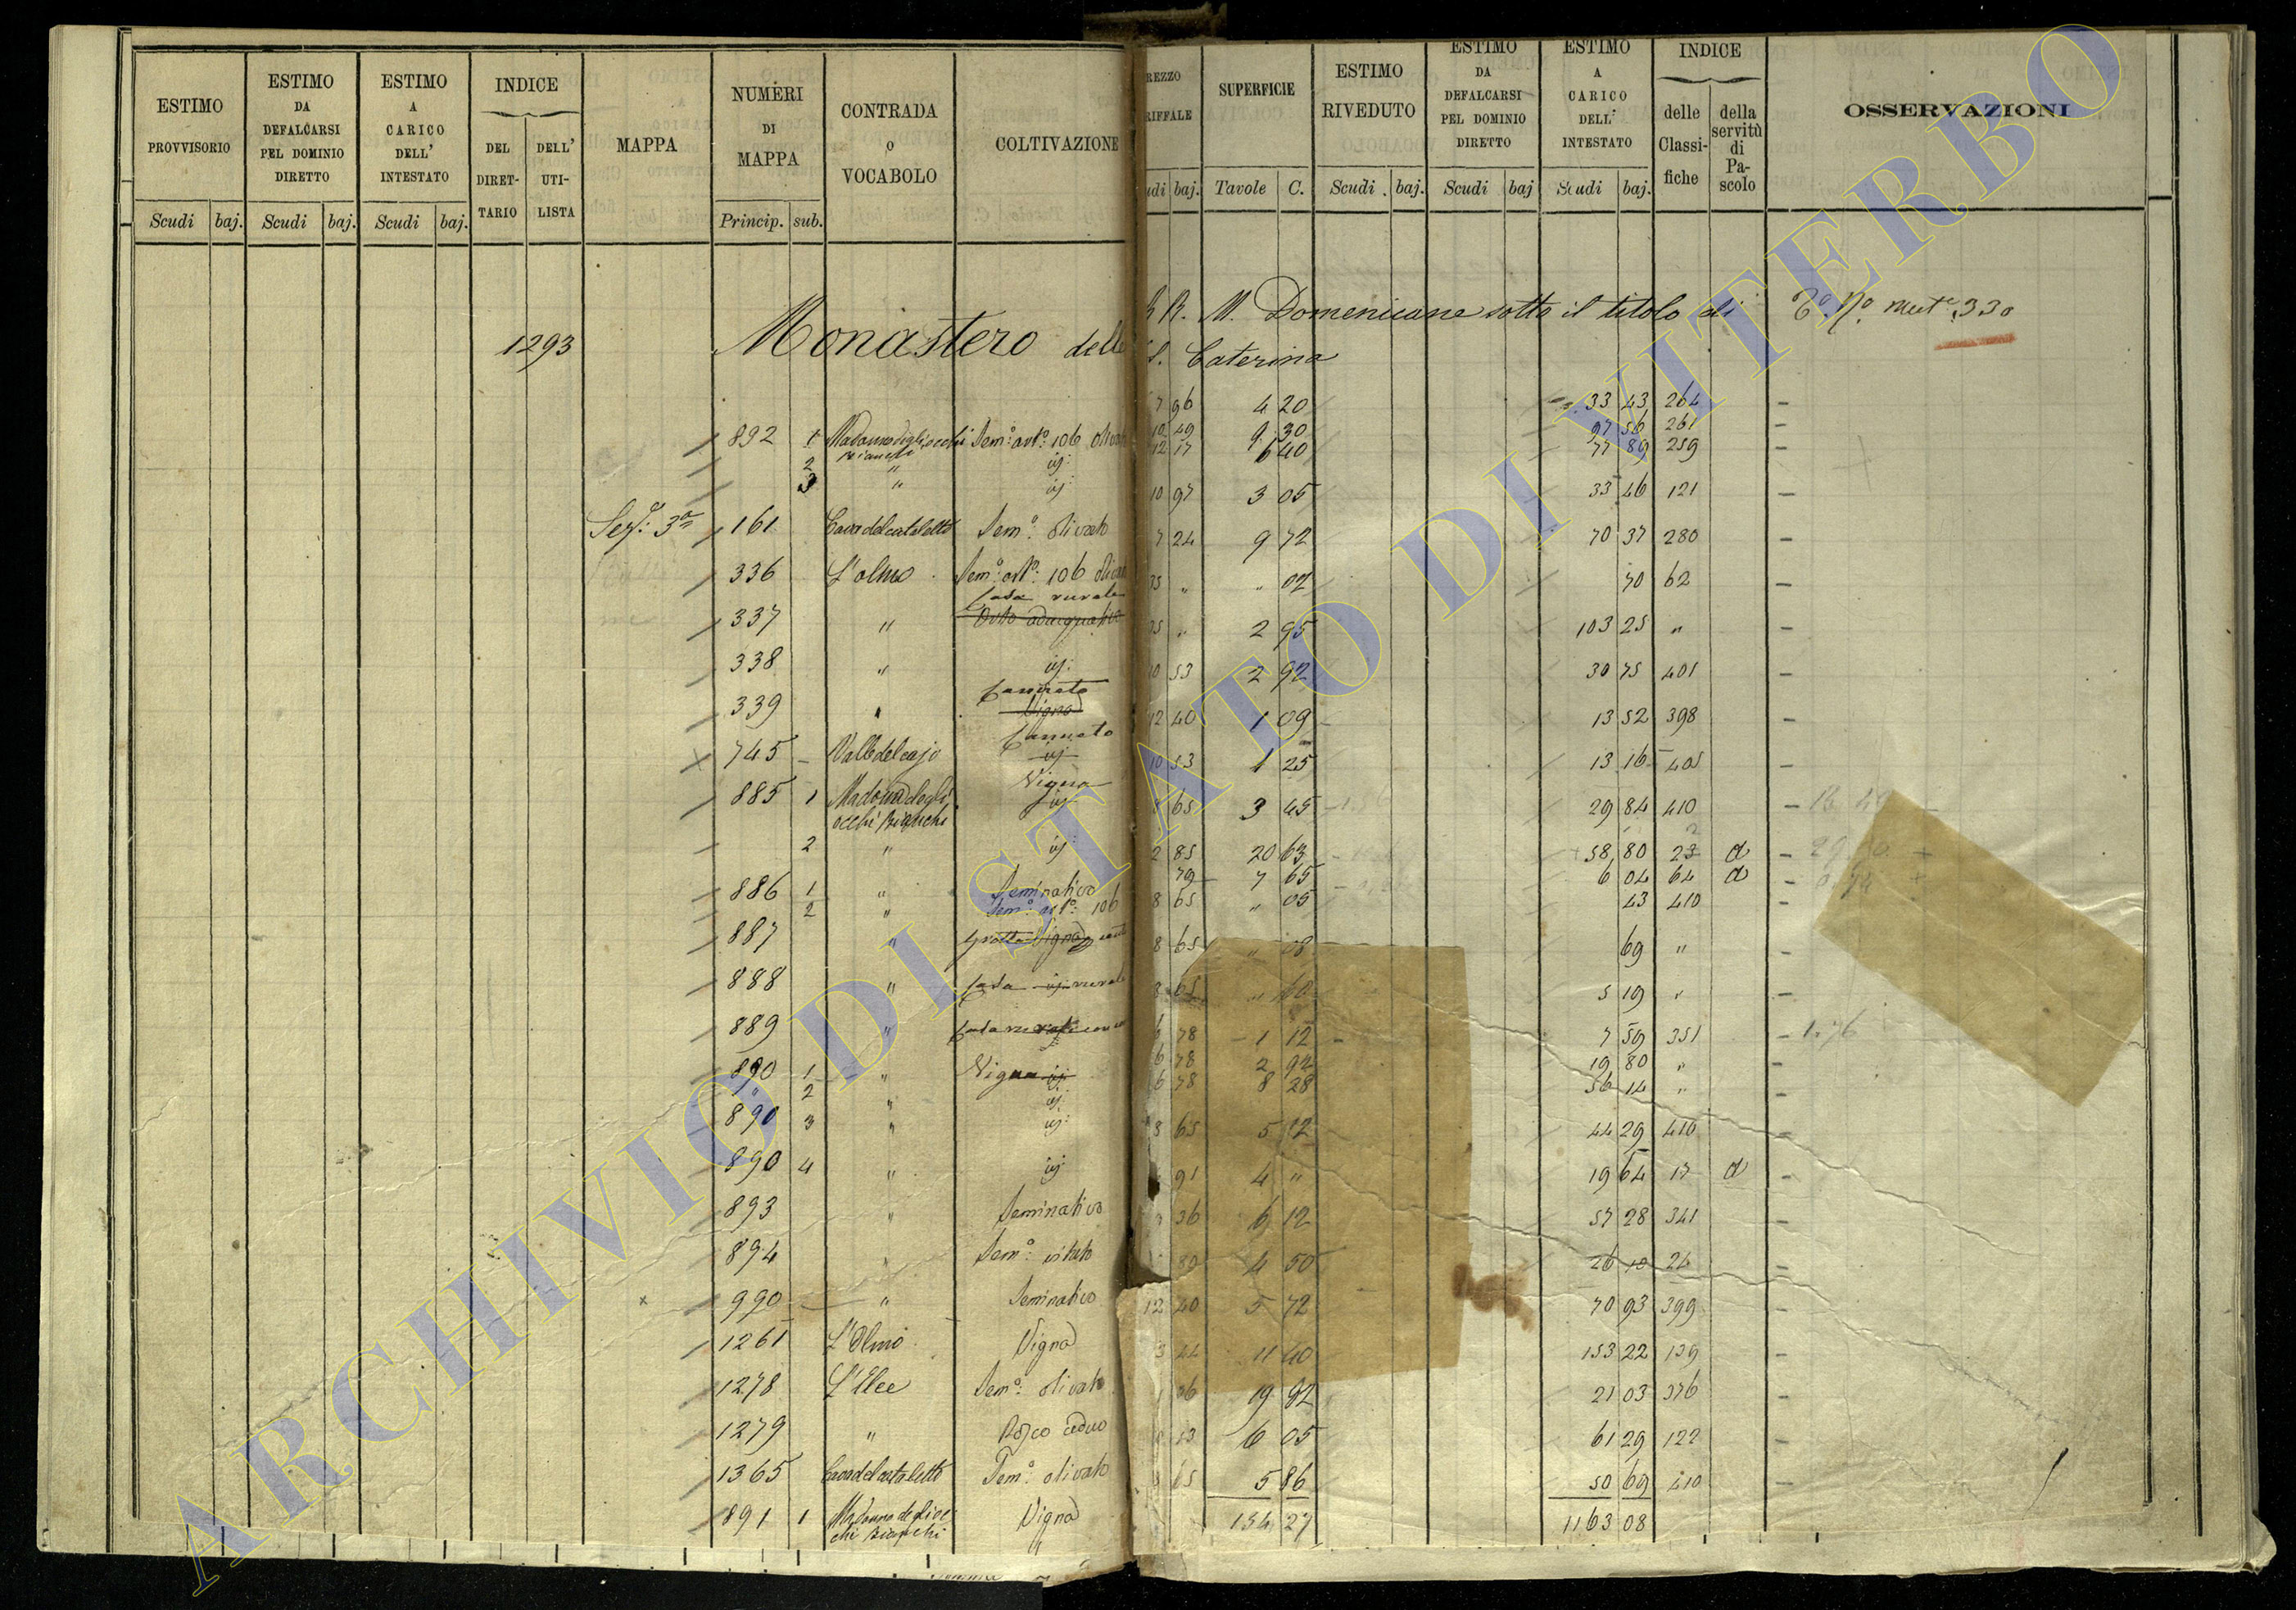 ESTIMO PROVVISORIO
ESTIMO DA DEFALCARSI PEL DOMINIO DIRETTO
ESTIMO A CARICO DELL' INTESTATO
INDICE
DEL DIRETTARIO
DELL' UTILISTA
MAPPA
NUMERI DI MAPPA
CONTRADA o VOCABOLO
COLTIVAZIONE
Scudi baj. Scudi baj. Scudi baj. Princip. sub.
REZZO RIFFALE
SUPERFICIE
ESTIMO RIVEDUTO
ESTIMO DA DEFALCARSI PEL DOMINIO DIRETTO
ESTIMO A CARICO DELL' INTESTATO
INDICE
delle Classifiche
della servitù di Pascolo
OSSERVAZIONI
udi baj. Tavole C. Scudi baj. Scudi baj Scudi baj.
1293 Monastero delle RR. M. Domenicane sotto il titolo di
S. Caterina
330
892 1 Madonna degli occhi Bianchi Sem.o art.o 106 olivato
2 " id:
3 " id:
Sez.: 3a 161 Cava del cataletto Sem.o olivato
336 L'olmo Sem.o art.o 106 olivato
337 " Casa rurale Orto adacquativo
338 " id:
339 " Canneto Vigna
745 Valle del cajo Canneto id
885 1 Madonna degli occhi Bianchi Vigna id
2 " id:
886 1 " Seminativo
2 " Sem.o art.o 106
887 " Grotta Vigna
888 " Casa id rurale
889 " Casa rurale
890 1 " Vigna id
" 2 " id:
890 3 " id:
890 4 " id
893 " Seminativo
894 " Sem.o vitato
990 " Seminativo
1261 L'Olmo Vigna
1278 L'Elce Sem.o olivato
1279 " Bosco ceduo
1365 Cava del cataletto Sem.o olivato
891 1 Madonna degli occhi Bianchi Vigna
7 96 4 20 33 43 264
10 49 9 30 97 56 261
12 17 6 40 77 89 259
10 97 3 05 33 46 121
7 24 9 72 70 37 280
35 " " 02 70 62
35 " 2 95 103 25 "
10 53 2 92 30 75 401
12 40 1 09 13 52 398
10 53 1 25 13 16 405
8 65 3 45 29 84 410
2 85 20 63 58 80 23 a
79 7 65 6 04 64 a
8 65 " 05 43 410
8 65 " 08 69 "
8 65 " 60 5 19 "
6 78 1 12 7 59 351 1.76
6 78 2 92 19 80 "
6 78 8 28 56 14 "
8 65 5 12 44 29 410
91 4 " 19 64 17 a
36 6 12 57 28 341
80 4 50 26 10 24
12 40 5 72 70 93 399
3 44 11 40 153 22 139
1 06 19 82 21 03 376
13 6 05 61 29 122
8 65 5 86 50 69 410
154 27 1163 08
ARCHIVIO DI STATO DI VITERBO